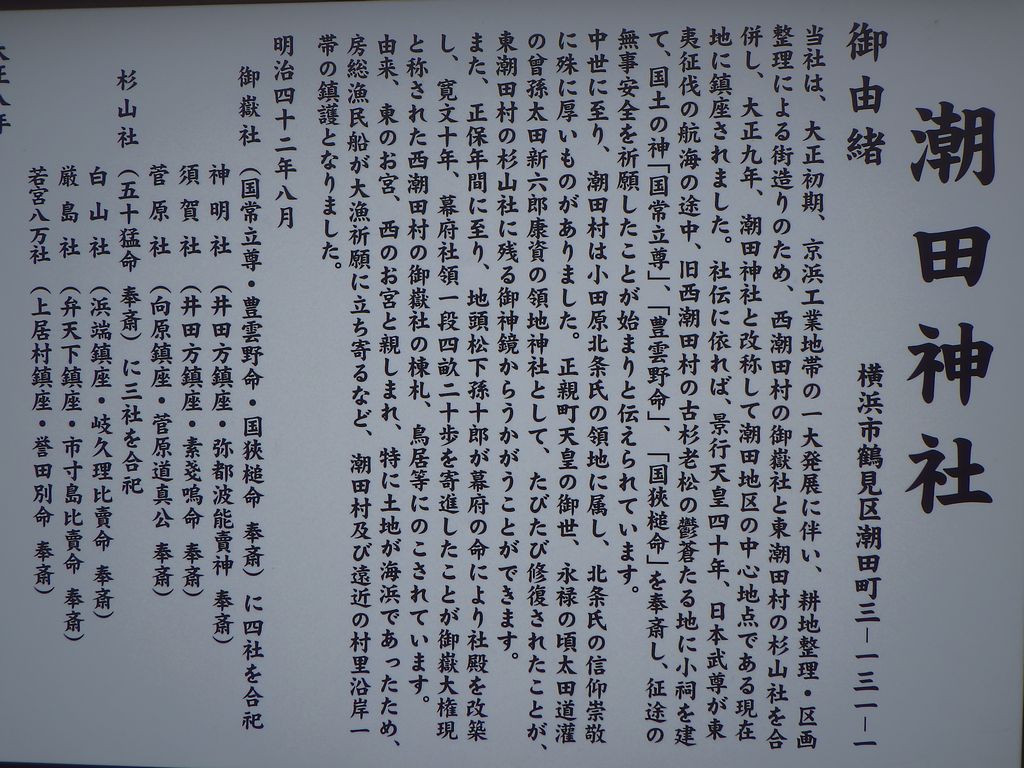 潮田神社
横浜市鶴見区潮田町三−一三一−一
御由緒
当社は、大正初期、京浜工業地帯の一大発展に伴い、耕地整理・区画
整理による街造りのため、西潮田村の御嶽社と東潮田村の杉山社を合
併し、大正九年、潮田神社と改称して潮田地区の中心地点である現在
地に鎮座されました。社伝に依れば、景行天皇四十年、日本武尊が東
夷征伐の航海の途中、旧西潮田村の古杉老松の鬱蒼たる地に小祠を建
て、国土の神「国常立尊」、「豊雲野命」、「国狭槌命」を奉斎し、征途の
無事安全を祈願したことが始まりと伝えられています。
中世に至り、潮田村は小田原北条氏の領地に属し、北条氏の信仰崇敬
に殊に厚いものがありました。正親町天皇の御世、永禄の頃太田道灌
の曾孫太田新六郎康資の領地神社として、たびたび修復されたことが、
東潮田村の杉山社に残る御神鏡からうかがうことができます。
また、正保年間に至り、地頭松下孫十郎が幕府の命により社殿を改築
し、寛文十年、幕府社領一段四畝二十歩を寄進したことが御嶽大権現
と称された西潮田村の御嶽社の棟札、鳥居等にのこされています。
由来、東のお宮、西のお宮と親しまれ、特に土地が海浜であったため、
房総漁民船が大漁祈願に立ち寄るなど、潮田村及び遠近の村里沿岸一
帯の鎮護となりました。
明治四十二年八月
御嶽社（国常立尊・豊雲野命・国狭槌命 奉斎）に四社を合祀
神明社（井田方鎮座・弥都波能賣神 奉斎）
須賀社（井田方鎮座・素戔嗚命 奉斎）
菅原社（向原鎮座・菅原道真公 奉斎）
杉山社（五十猛命 奉斎）に三社を合祀
白山社（浜端鎮座・岐久理比賣命 奉斎）
厳島社（弁天下鎮座・市寸島比賣命 奉斎）
若宮八万社（上居村鎮座・誉田別命 奉斎）
大正八年